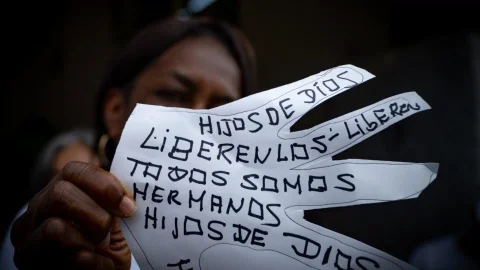 HIJOS DE DÍOS
LIBERENLOS-LIBEREN
TODOS SOMOS
HERMANOS
HIJOS DE DIOS